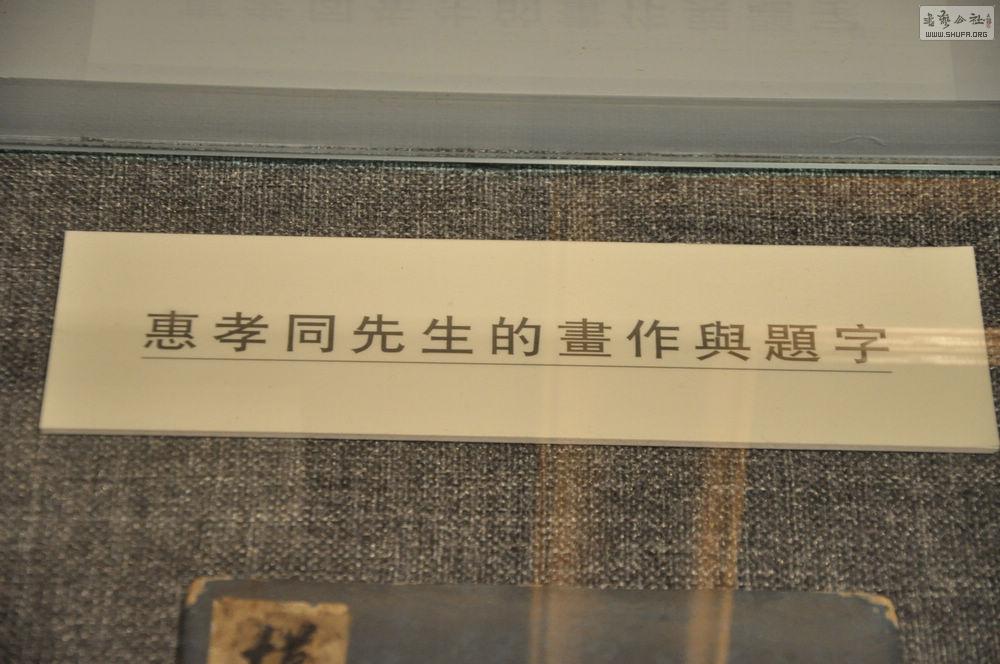 WWW.SHUFA.ORG
惠孝同先生的畫作與題字